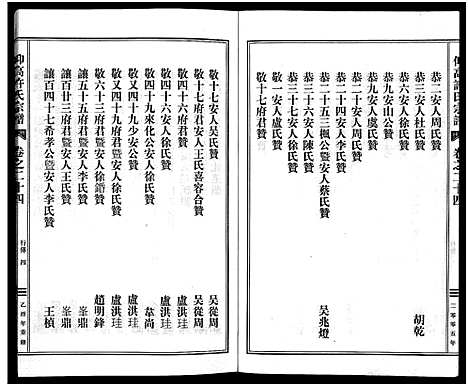 仰高許氏宗譜
卷之二十四
二〇〇五年
恭二安人周氏贊
恭三安人杜氏贊 胡乾
恭六安人盧氏贊
恭九安山公贊
恭九安人徐氏贊
恭二十四安人周氏贊
恭二十五三楓公暨安人蔡氏贊 吴兆燈
恭三十六安人陳氏贊
敬一安人盧氏贊
敬十七府君贊
敬十七安人吴氏贊 吴從周
敬十七府君暨安人王氏喜容合贊 吴從周
敬四十六安人徐氏贊 盧洪珪
敬四十九來化公安人徐氏贊 韋尚
敬又四十九少安公贊 盧洪珪
敬又四十九府君暨安人徐氏贊 盧洪珪
敬六十三府君暨安人徐氏贊 趙明鋒
讓五十五府君暨安人李氏贊 峑鼎
讓百廿三府君暨安人王氏贊 峑鼎
讓百四十七希孝公暨安人李氏贊 王楨
仰高許氏宗譜
卷之二十四
行傳 四
乙酉年重修